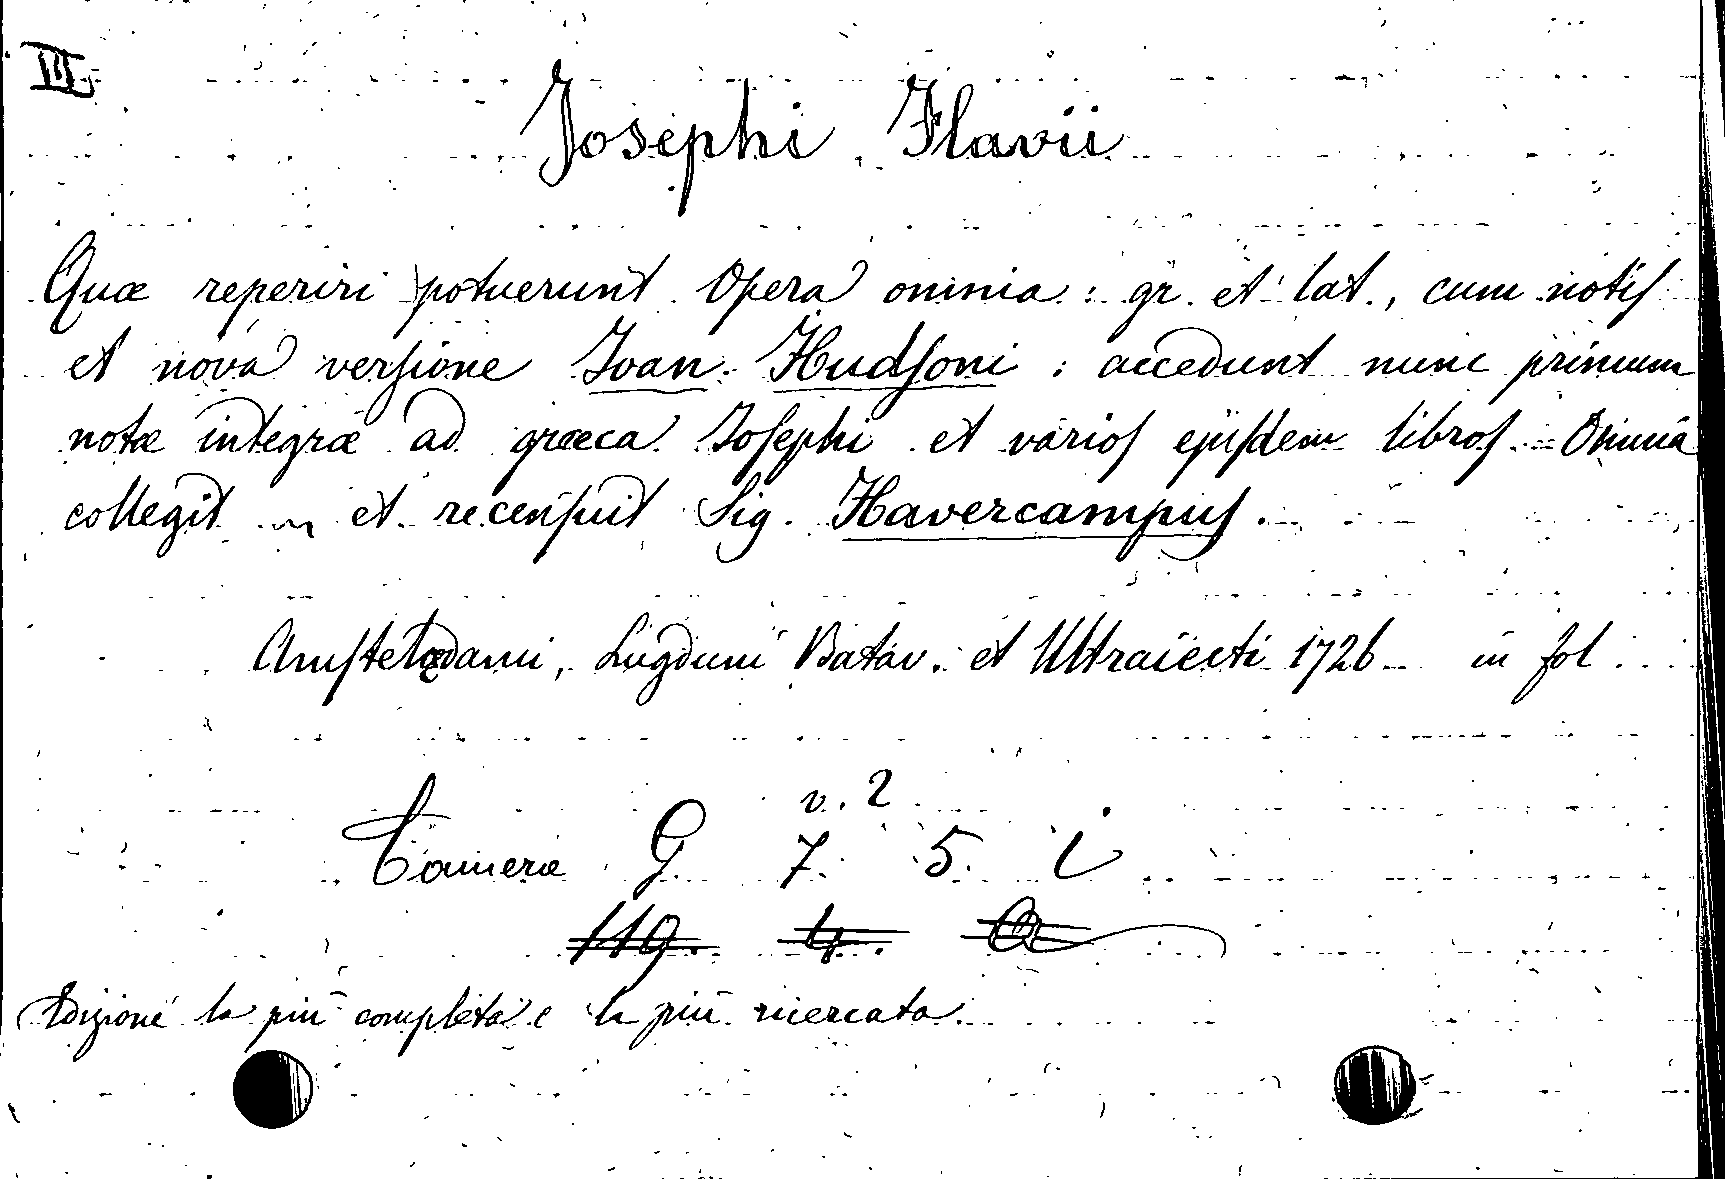 III
Josephi Flavii
Quæ reperiri potuerunt Opera omnia : gr. et lat., cum notiſ
et nova verſione Ioan. Hudſoni : accedunt nunc primum
notæ integræ ad græca Ioſephi et varioſ ejuſdem libroſ. - Omnia
collegit et recenſuit Sig. Havercampuſ.
Amſtelædami, Lugduni Batav. et Ultraiecti 1726 - in fol.
v. 2
Camera G. 7. 5. i
119. 4. a
Edizione la più completa e la più ricercata.